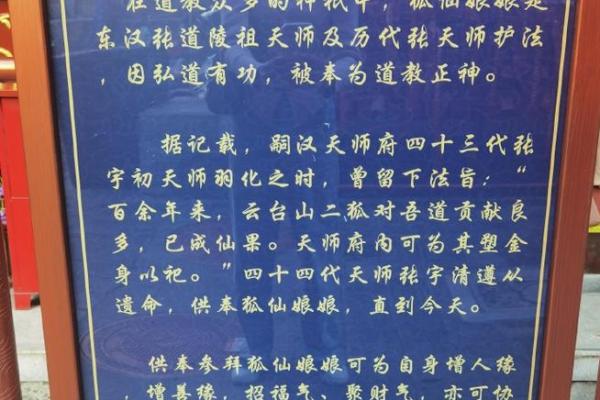 在道教众多的神祇中，狐仙娘娘是
东汉张道陵祖天师及历代张天师护法
，因弘道有功，被奉为道教正神。
据记载，嗣汉天师府四十三代张
宇初天师羽化之时，曾留下法旨：“
百余年来，云台山二狐对吾道贡献良
多，已成仙果。天师府内可为其塑金
身以祀。”四十四代天师张宇清遵从
遗命，供奉狐仙娘娘，直到今天。
供奉参拜狐仙娘娘可为自身增人缘
，增善缘，招福气、聚财气，亦可协